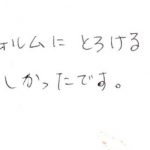 ォルムに とろける
しかったです。